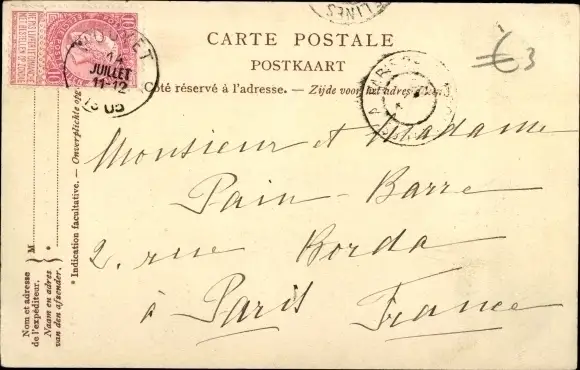 CARTE POSTALE
POSTKAART
Côté réservé à l'adresse. — Zijde voor het adres
€3
14
JUILLET
11-12
05
Monsieur et Madame
Pain-Barre
2. rue Borda
à Paris France
* Indication facultative. — Onverplichte
M
*
Nom et adresse
de l'expéditeur.
Naam en adres
van den afzender.